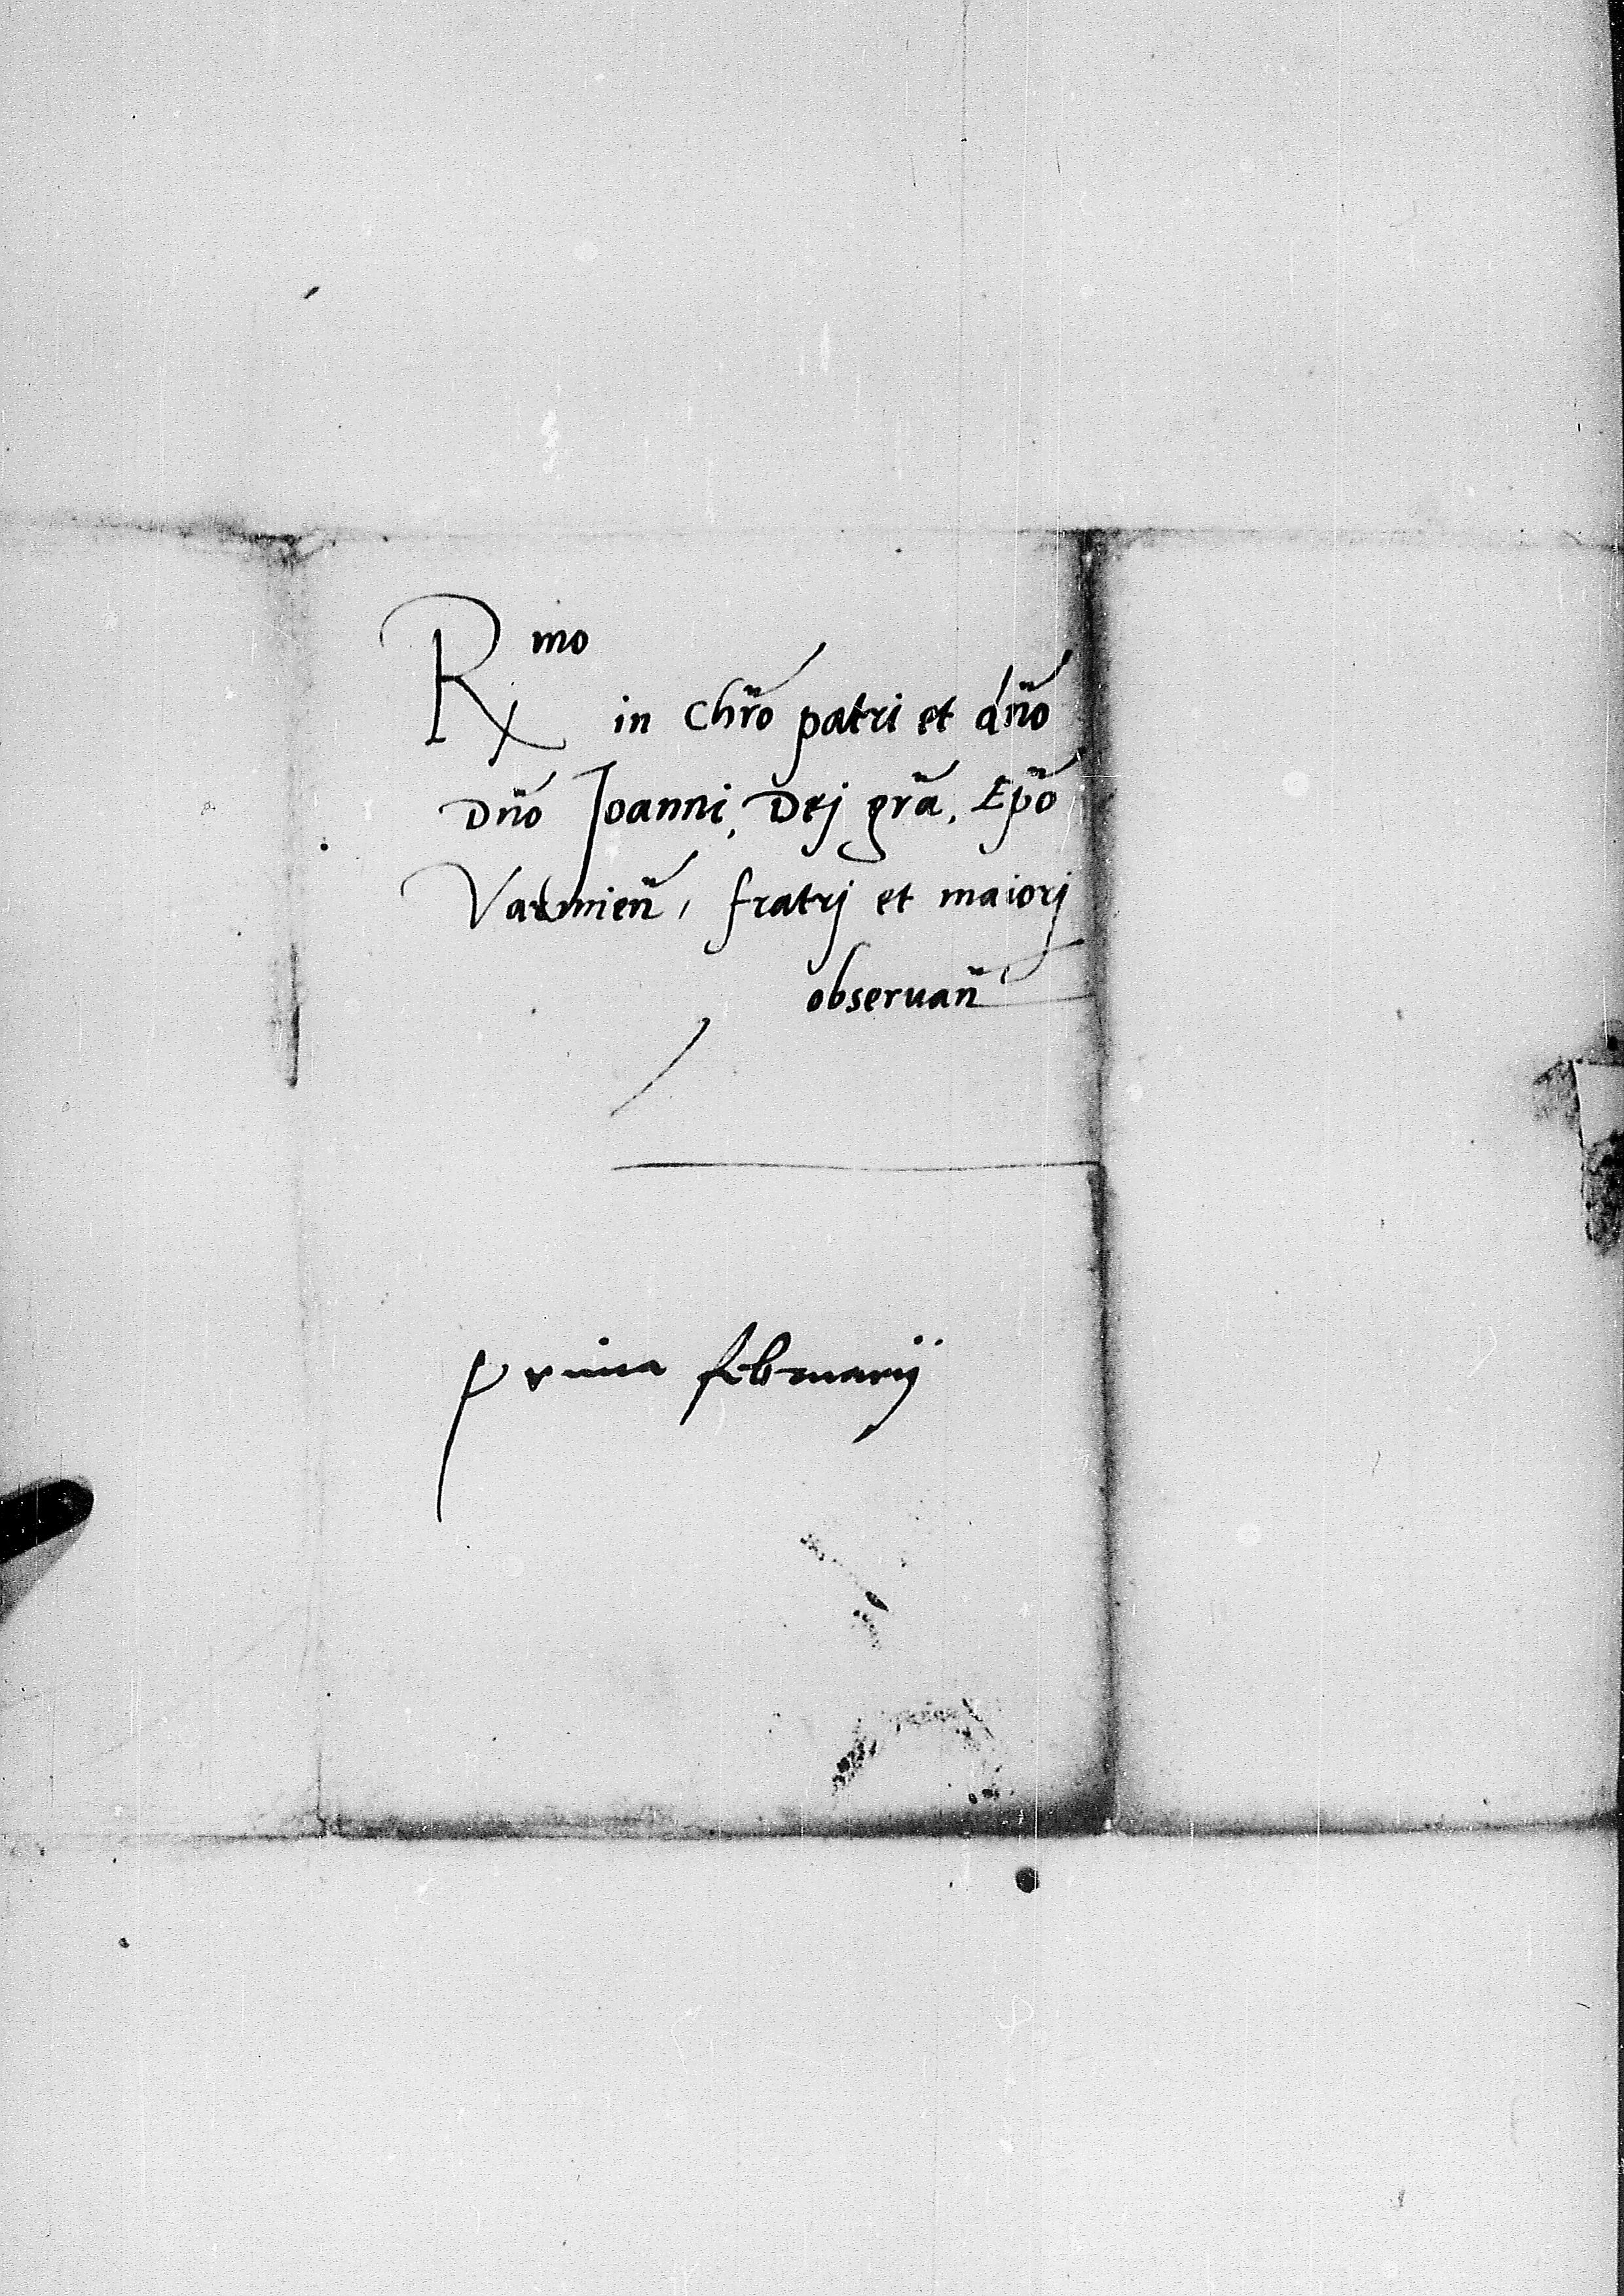 Rmo
in Chr̃o patri et dño
Dño Joanni, Dej gr̃a, Ep̃o
Varmieñ, fratrj et maiorj
obseruañ
prima februarij